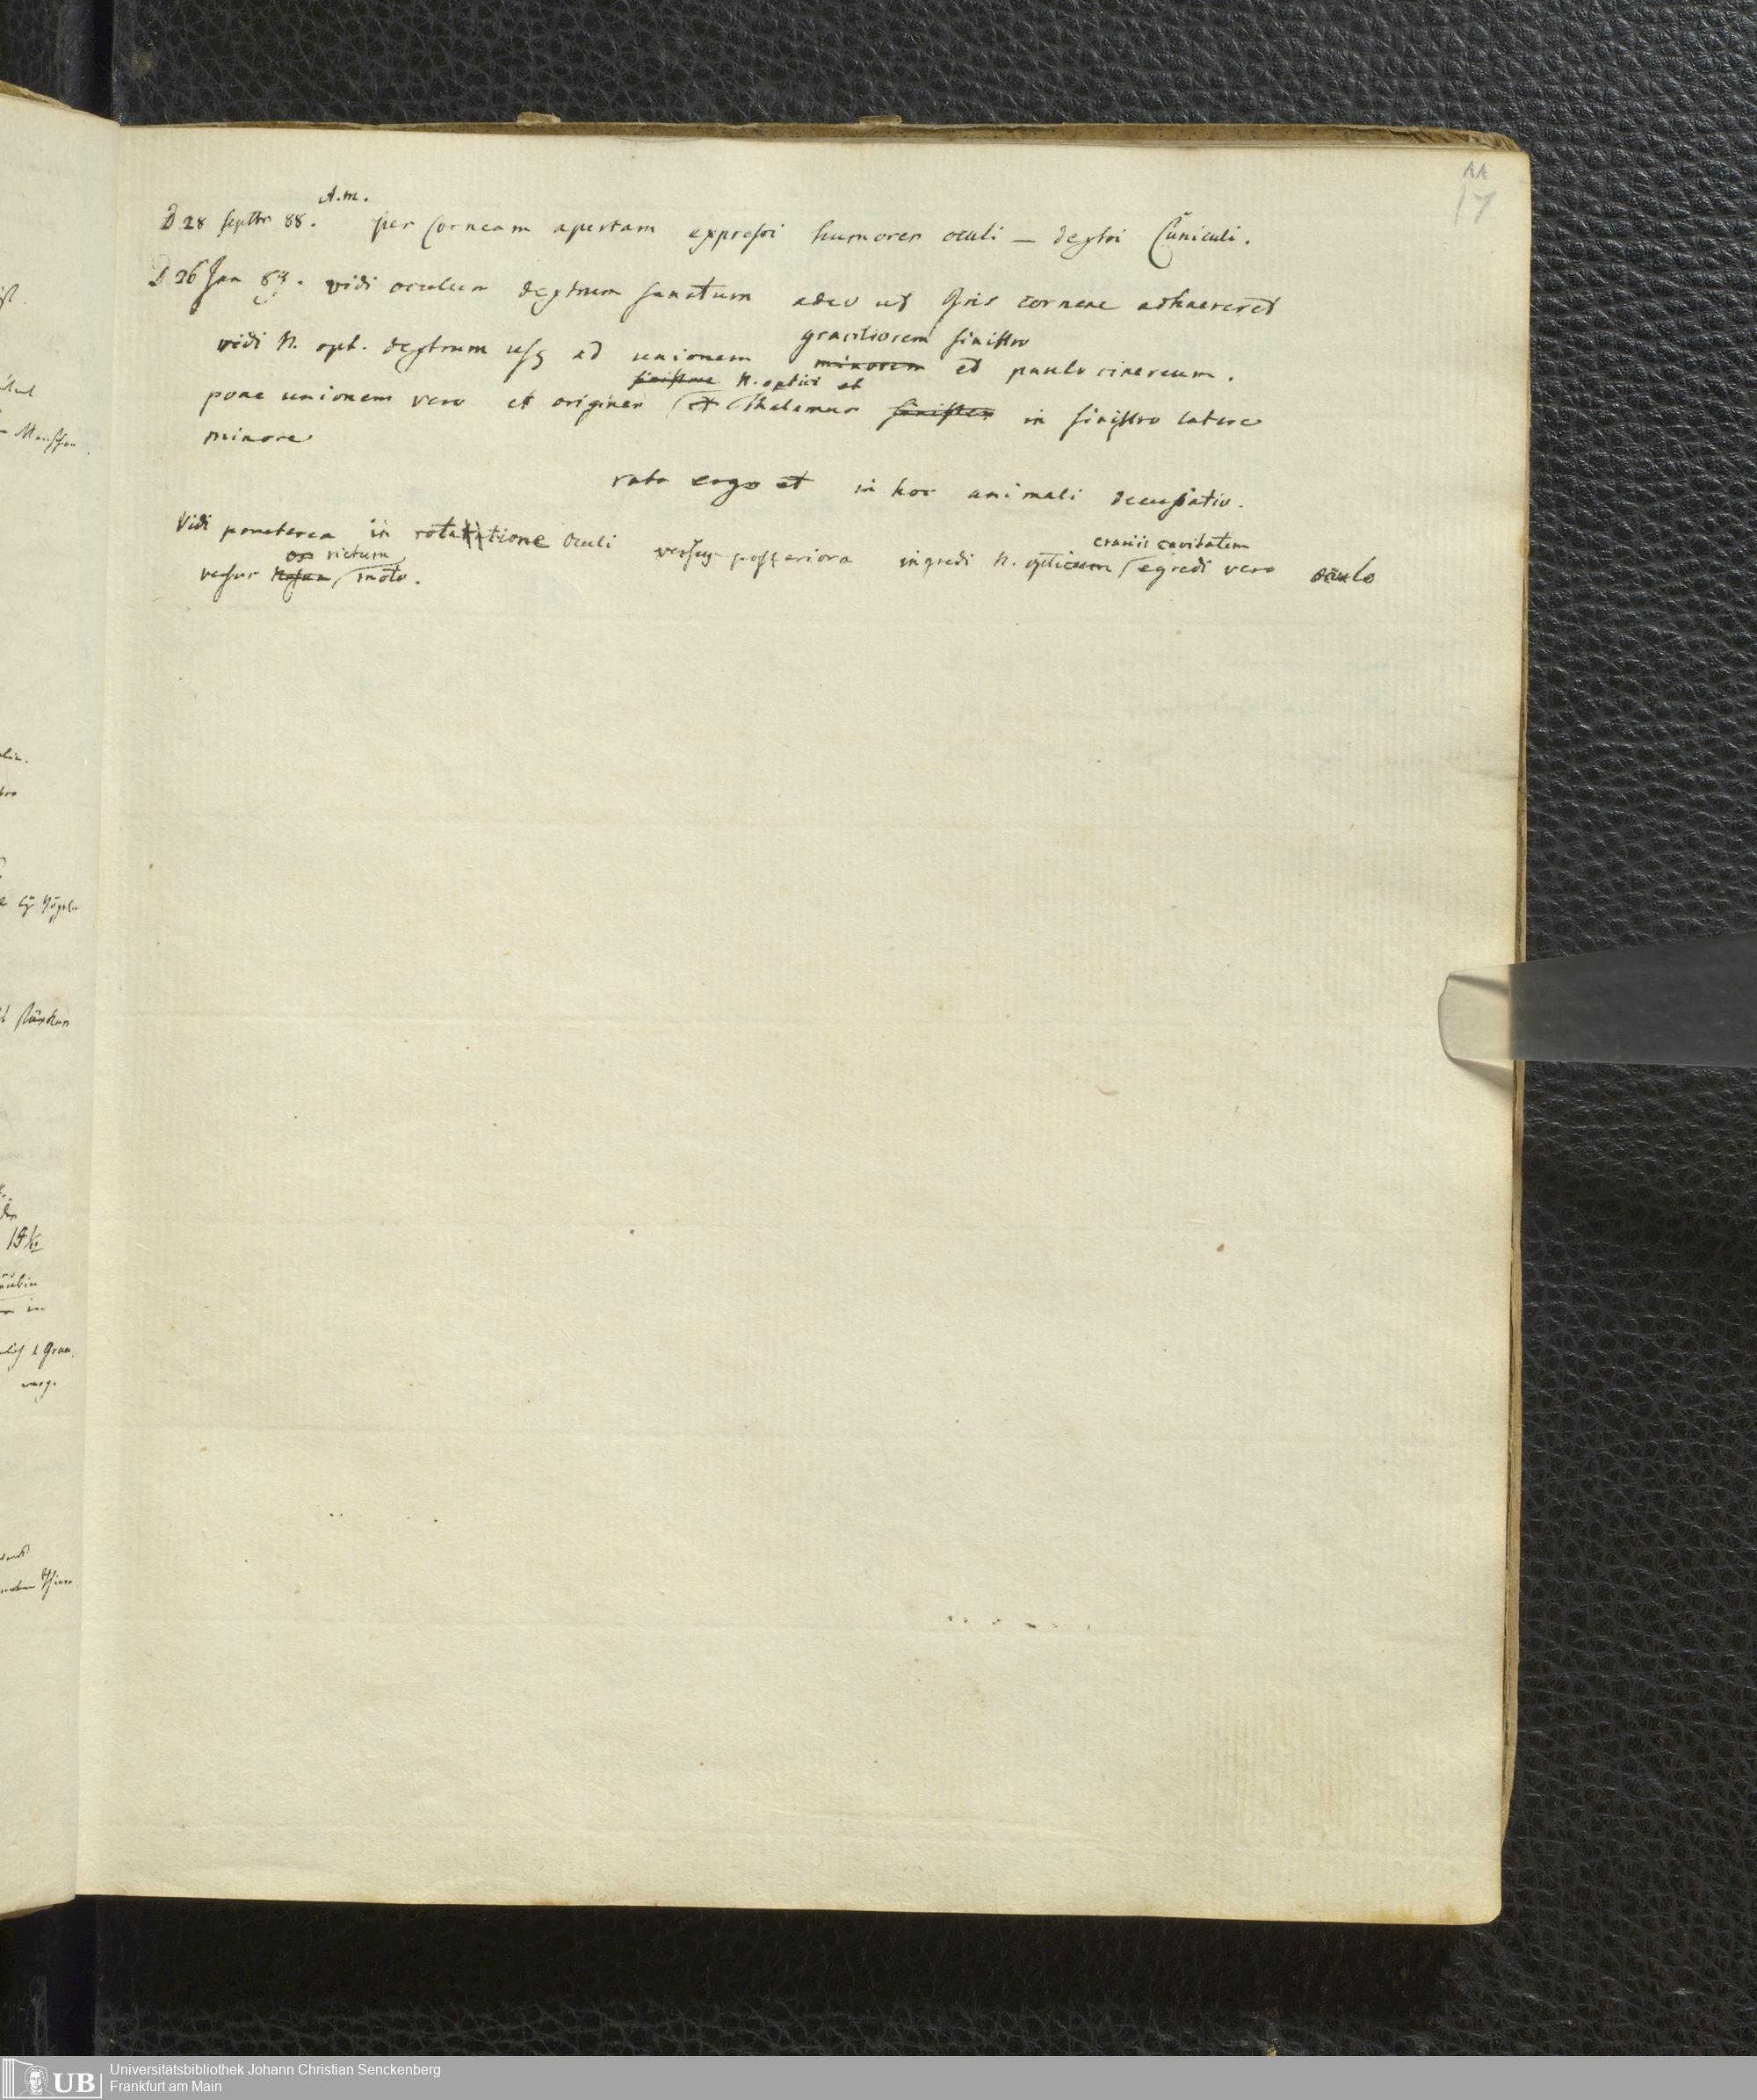 11
17
A.m.
D 28 Septbr 88. per Corneam apertam expressi humores oculi — dextri Cuniculi.
D 26 Jan 89. vidi oculum dextrum sanatum adeo ut Iris corneae adhaereret
graciliorem sinistro
vidi N. opt. dextrum usq ad unionem minorem et paulo cinereum.
sinistrae N. optici et
pone unionem vero et origines et Thalamus sinister in sinistro latere
minore
rata ergo et in hoc animali decussatio.
Vidi praeterea in rotatione oculi versus posteriora ingredi N. opticum egredi vero oculo
cranii cavitatem
os rictum
versus nasum moto.
UB
Universitätsbibliothek Johann Christian Senckenberg
Frankfurt am Main